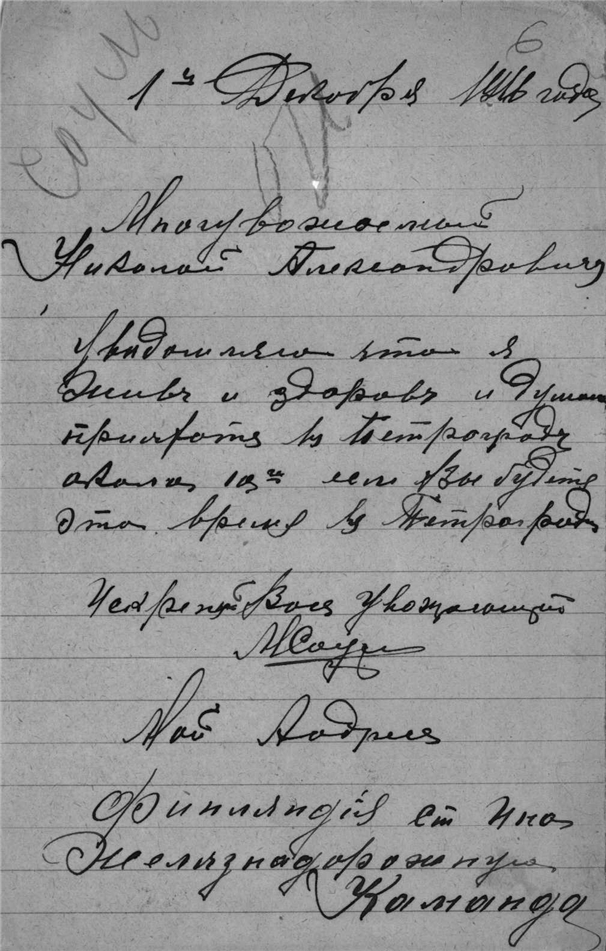 Соум
6
1го Декабря 1916 года
Многуважаемый
Николай Александровичъ
Уведомляю что я
живъ и здоровъ и думаю
приехать въ Петроградъ
около 10го если Вы будете
это время въ Петрограде
Искрений Васъ уважающий
МСоум
Мой Aадресъ
Финляндія ст Ино
Желязнадорожную
Каманда